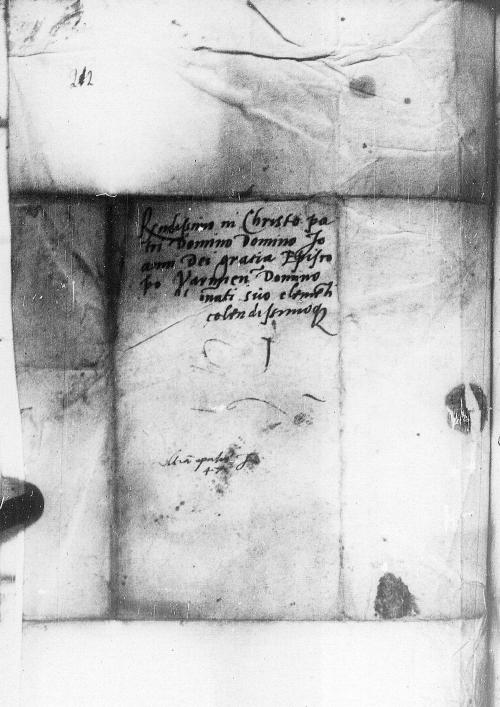 212
Rendissimo in Christo pa
tri Domino Domino Jo
anni Dei gratia Episco
po Varmien Domino
suo clementi
colendissimoq